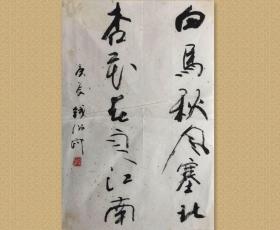 白馬秋风塞北
杏花春雨江南
庚辰 钱伯